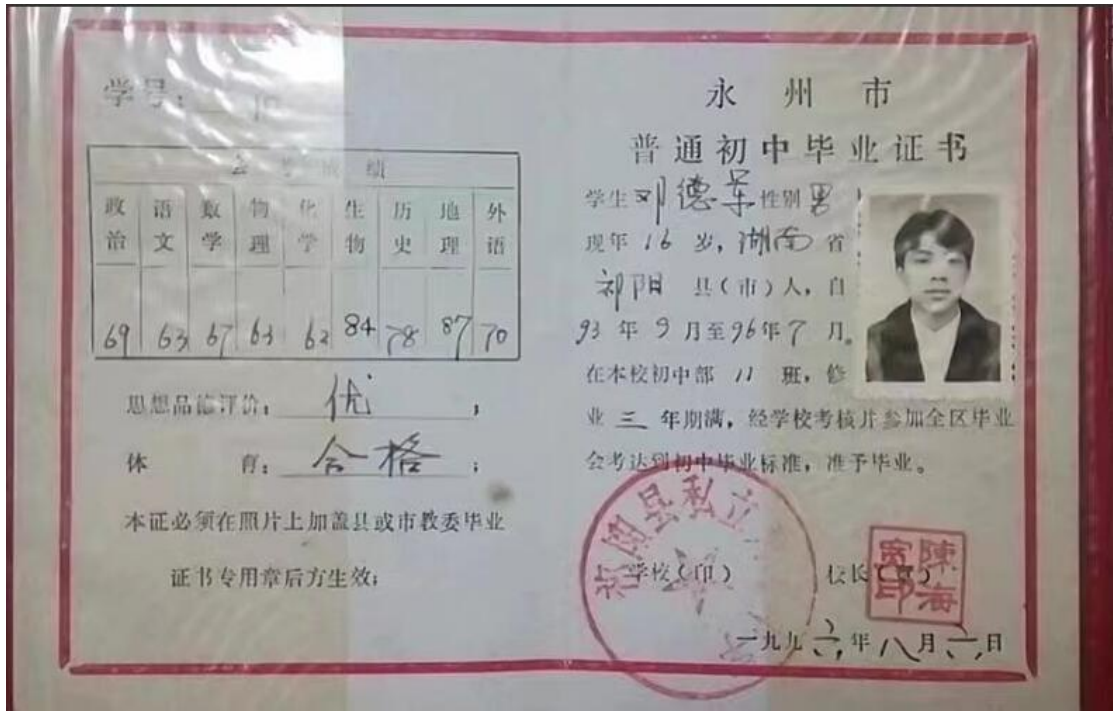 学号：
会考成绩
政治 语文 数学 物理 化学 生物 历史 地理 外语
69 63 67 63 62 84 78 87 70
思想品德评价： 优 ；
体 育： 合格 ；
本证必须在照片上加盖县或市教委毕业
证书专用章后方生效；
永 州 市
普通初中毕业证书
学生 邓德 性别 男
现年 16 岁，湖南 省
祁阳 县（市）人，自
93 年 9 月至 96 年 7 月。
在本校初中部 11 班，修
业 三 年期满，经学校考核并参加全区毕业
会考达到初中毕业标准，准予毕业。
祁阳县私立
学校（印） 校长（章）
陳海
印
一九九六年八月六日